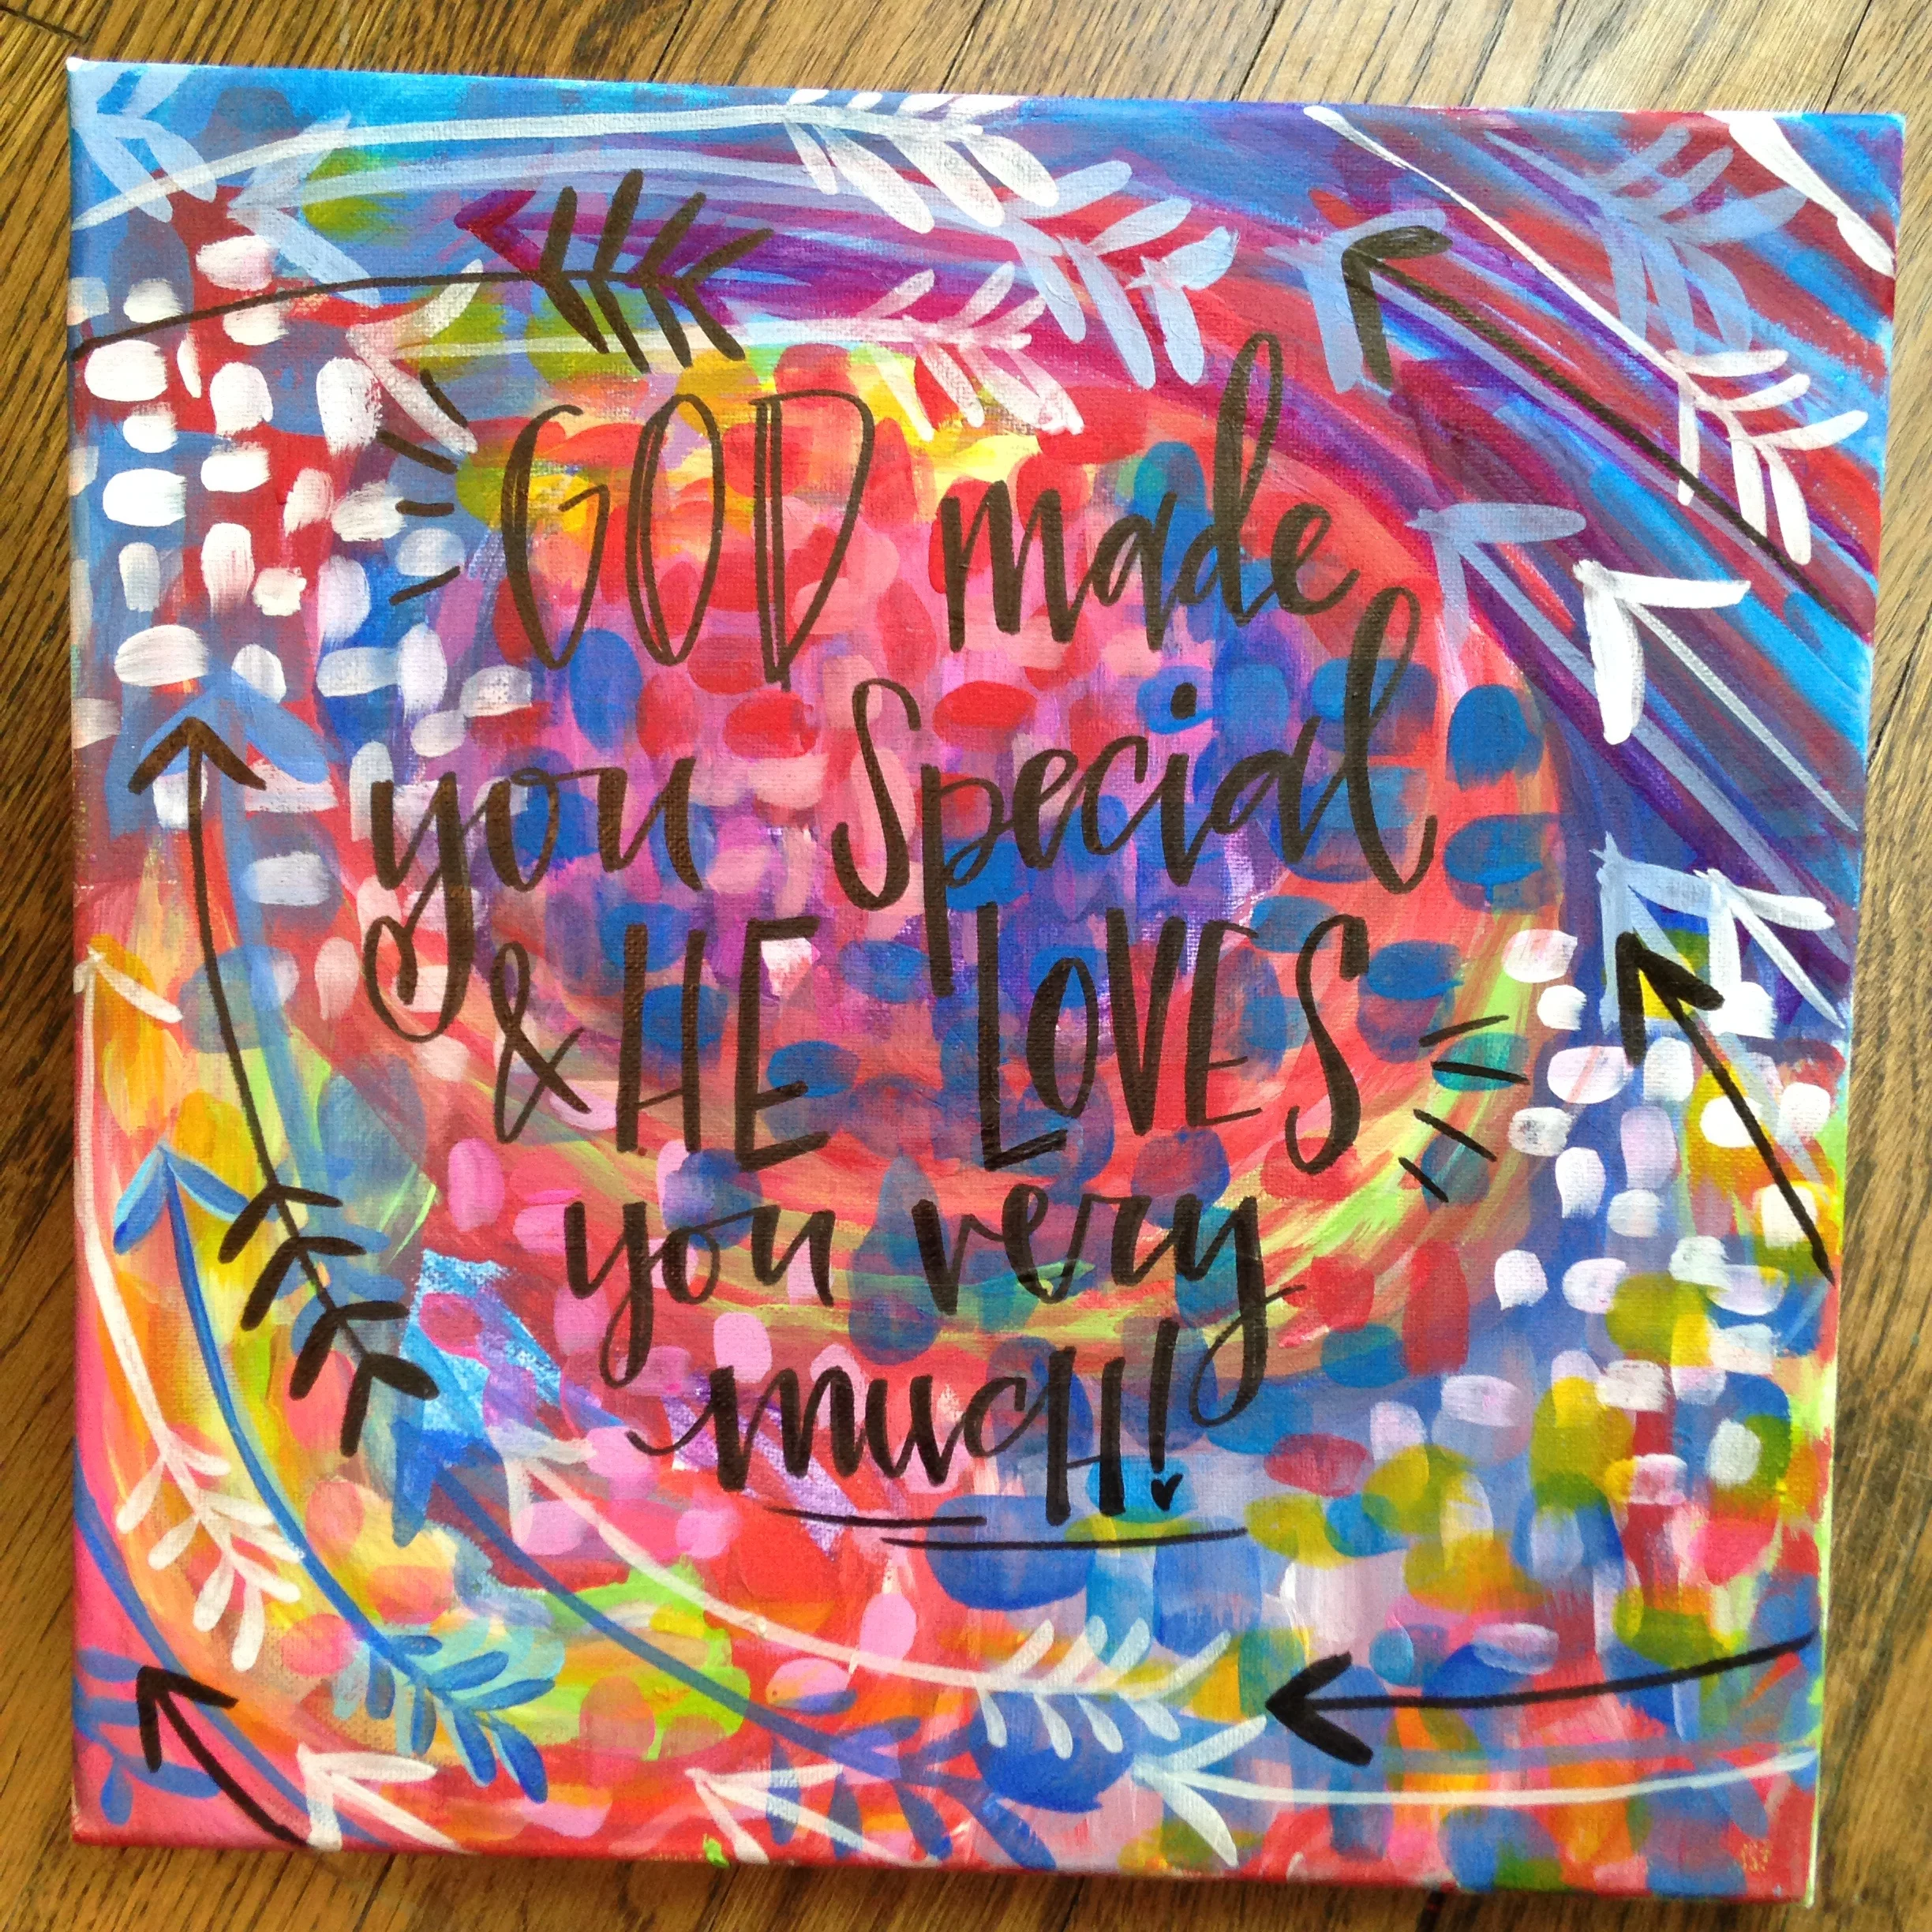 GOD made
you special
& HE LOVES
you very
mucH!